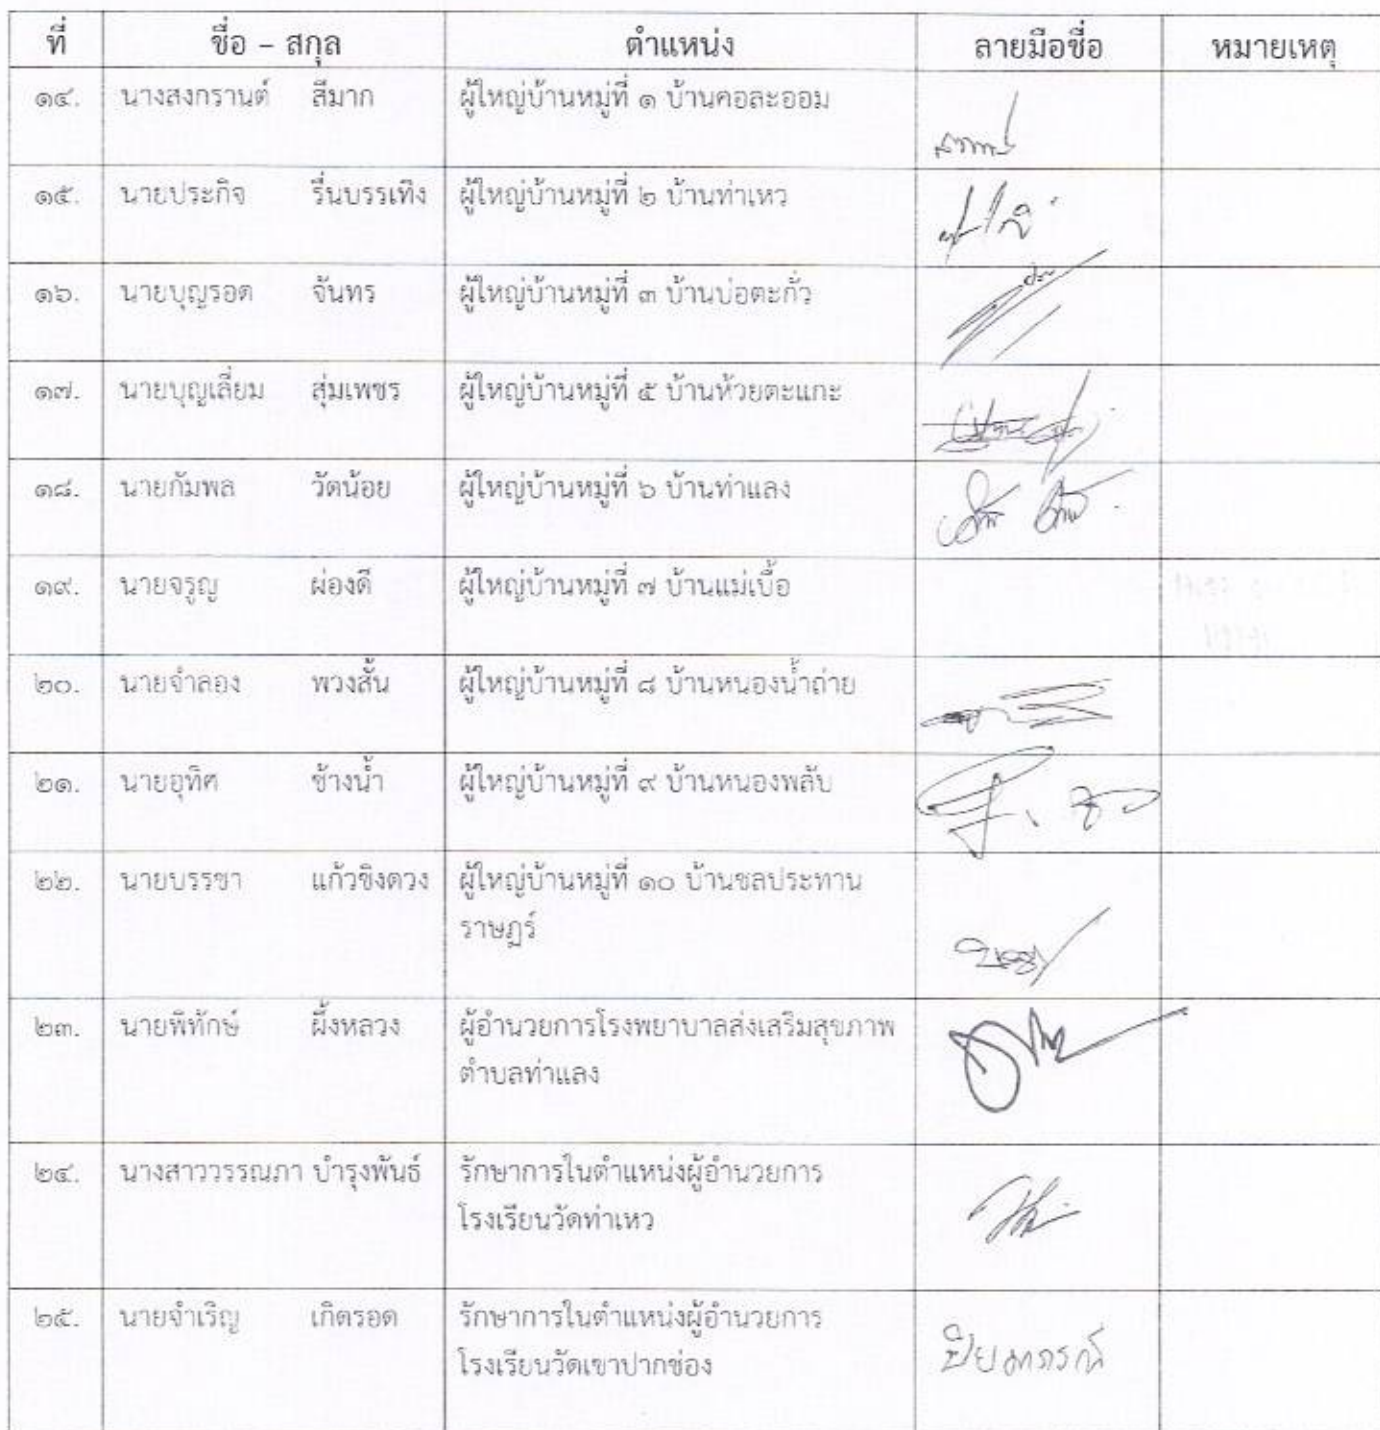 ที่ ชื่อ – สกุล ตำแหน่ง ลายมือชื่อ หมายเหตุ
๑๔. นางสงกรานต์ สีมาก ผู้ใหญ่บ้านหมู่ที่ ๑ บ้านคอละออม
๑๕. นายประกิจ รื่นบรรเทิง ผู้ใหญ่บ้านหมู่ที่ ๒ บ้านท่าเหว
๑๖. นายบุญรอด จันทร ผู้ใหญ่บ้านหมู่ที่ ๓ บ้านบ่อตะกั่ว
๑๗. นายบุญเลี่ยม สุ่มเพชร ผู้ใหญ่บ้านหมู่ที่ ๕ บ้านห้วยตะแกะ
๑๘. นายกัมพล วัดน้อย ผู้ใหญ่บ้านหมู่ที่ ๖ บ้านท่าแลง
๑๙. นายจรูญ ผ่องดี ผู้ใหญ่บ้านหมู่ที่ ๗ บ้านแม่เบื้อ
๒๐. นายจำลอง พวงสั้น ผู้ใหญ่บ้านหมู่ที่ ๘ บ้านหนองน้ำถ่าย
๒๑. นายอุทิศ ช้างน้ำ ผู้ใหญ่บ้านหมู่ที่ ๙ บ้านหนองพลับ
๒๒. นายบรรชา แก้วขิงดวง ผู้ใหญ่บ้านหมู่ที่ ๑๐ บ้านชลประทาน
ราษฎร์
๒๓. นายพิทักษ์ ผึ้งหลวง ผู้อำนวยการโรงพยาบาลส่งเสริมสุขภาพ
ตำบลท่าแลง
๒๔. นางสาววรรณภา บำรุงพันธ์ รักษาการในตำแหน่งผู้อำนวยการ
โรงเรียนวัดท่าเหว
๒๕. นายจำเริญ เกิดรอด รักษาการในตำแหน่งผู้อำนวยการ
โรงเรียนวัดเขาปากช่อง
ปิยมาภรณ์